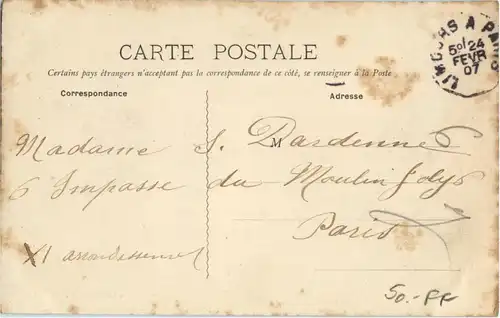 CARTE POSTALE
Certains pays étrangers n'acceptant pas la correspondance de ce côté, se renseigner à la Poste
Correspondance
Adresse
LIMOURS A PARIS
5ᵒ/24
FEVR
07
Madame S. Dardenne
M
6 Impasse du Moulin Joly
Paris
XI arrondissement
50.-FF